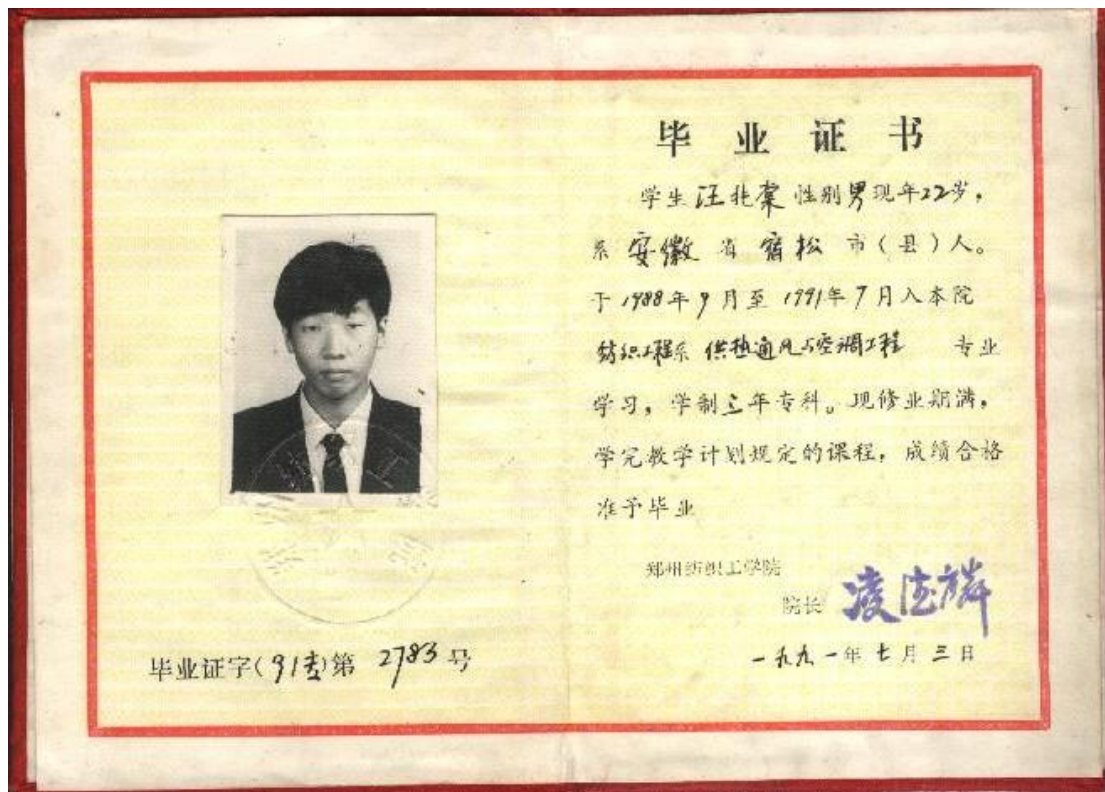 毕业证书
学生汪兆棠性别男现年22岁,
系安徽省宿松市(县)人。
于1988年9月至1991年7月入本院
纺织工程系 供热通风与空调工程 专业
学习,学制三年专科。现修业期满,
学完教学计划规定的课程,成绩合格
准予毕业
郑州纺织工学院
院长 凌德麟
一九九一年七月三日
毕业证字(91专)第 2783 号